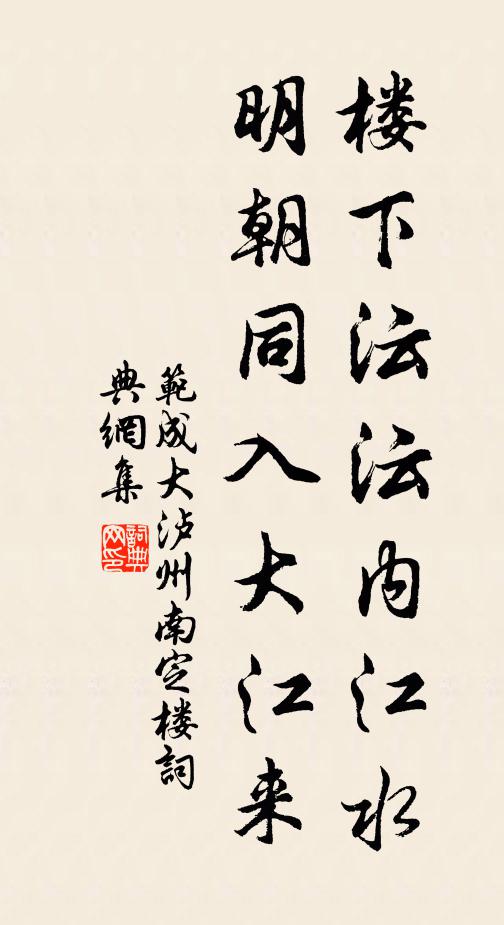 楼下沄沄内江水
明朝同入大江来
範成大泸州南定楼詞
典網集
詞典
网印